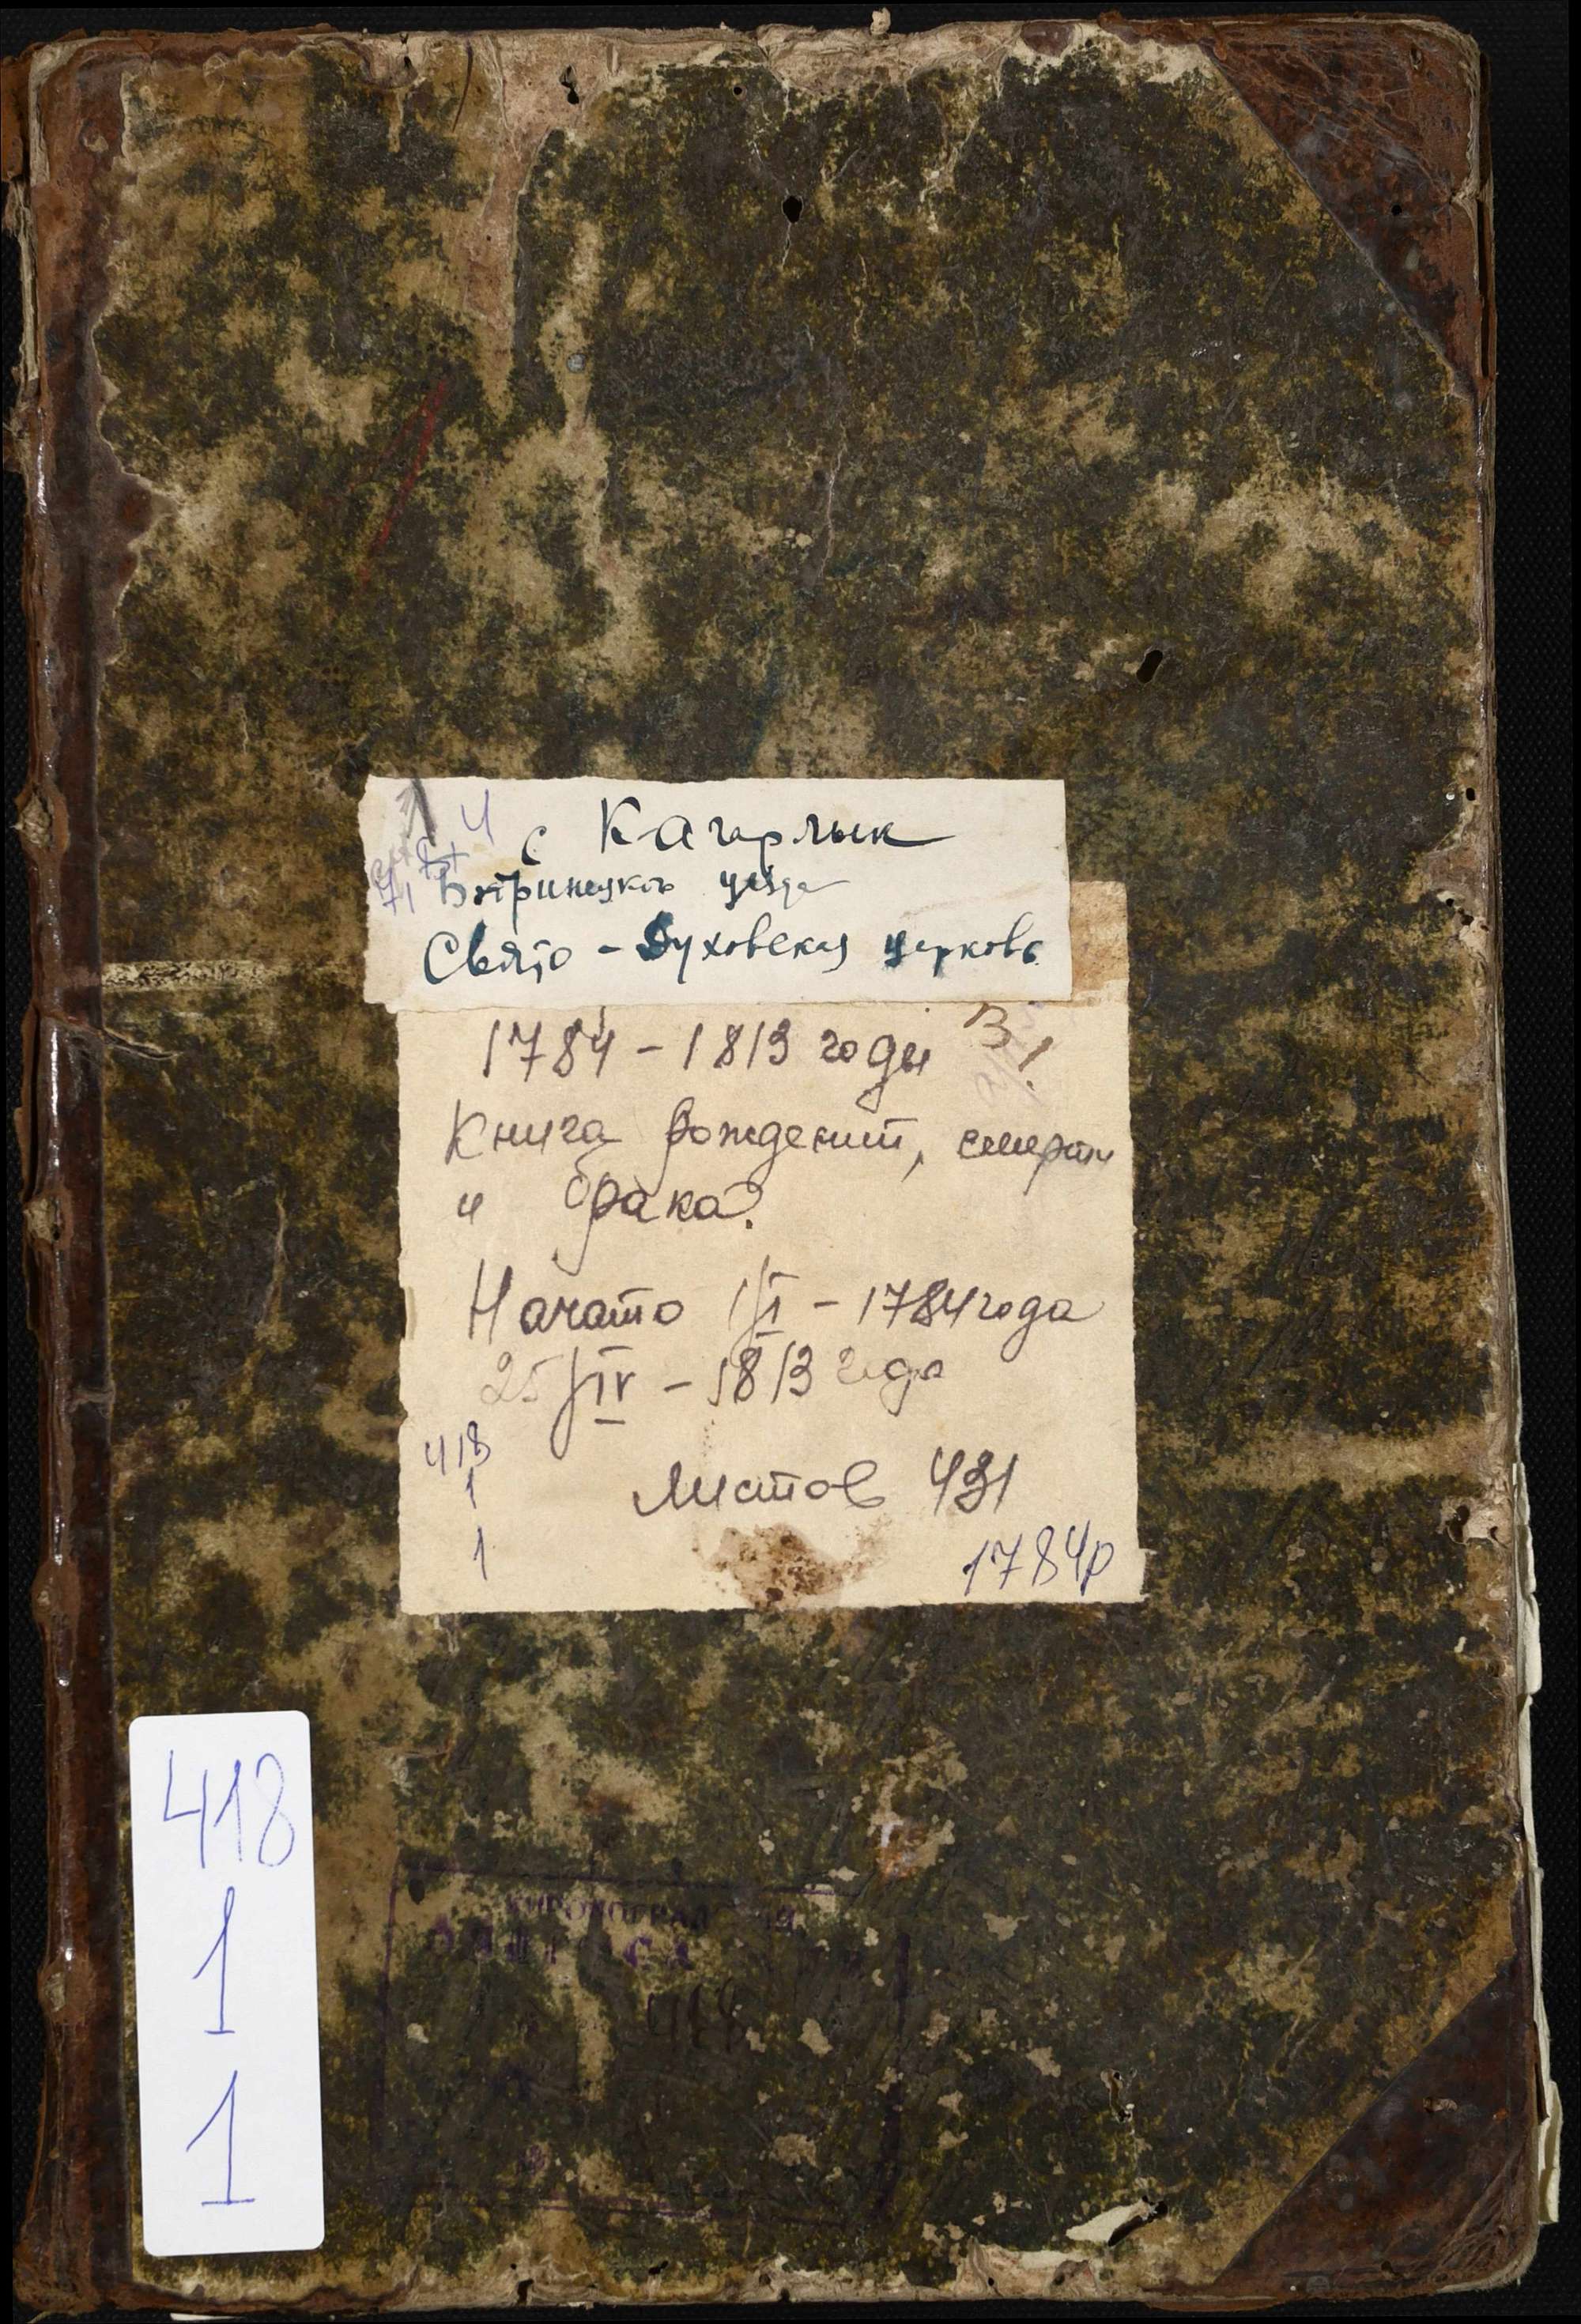 4
с Кагарлык
Бобринецкого уезда
Свято - Духовская церковь
1784 - 1813 годы
Книга рождений, смерти
и брака.
Начато 1/I - 1784 года
25/IV - 1813 года
418
1
Листов 431
1
1784р
418
1
1